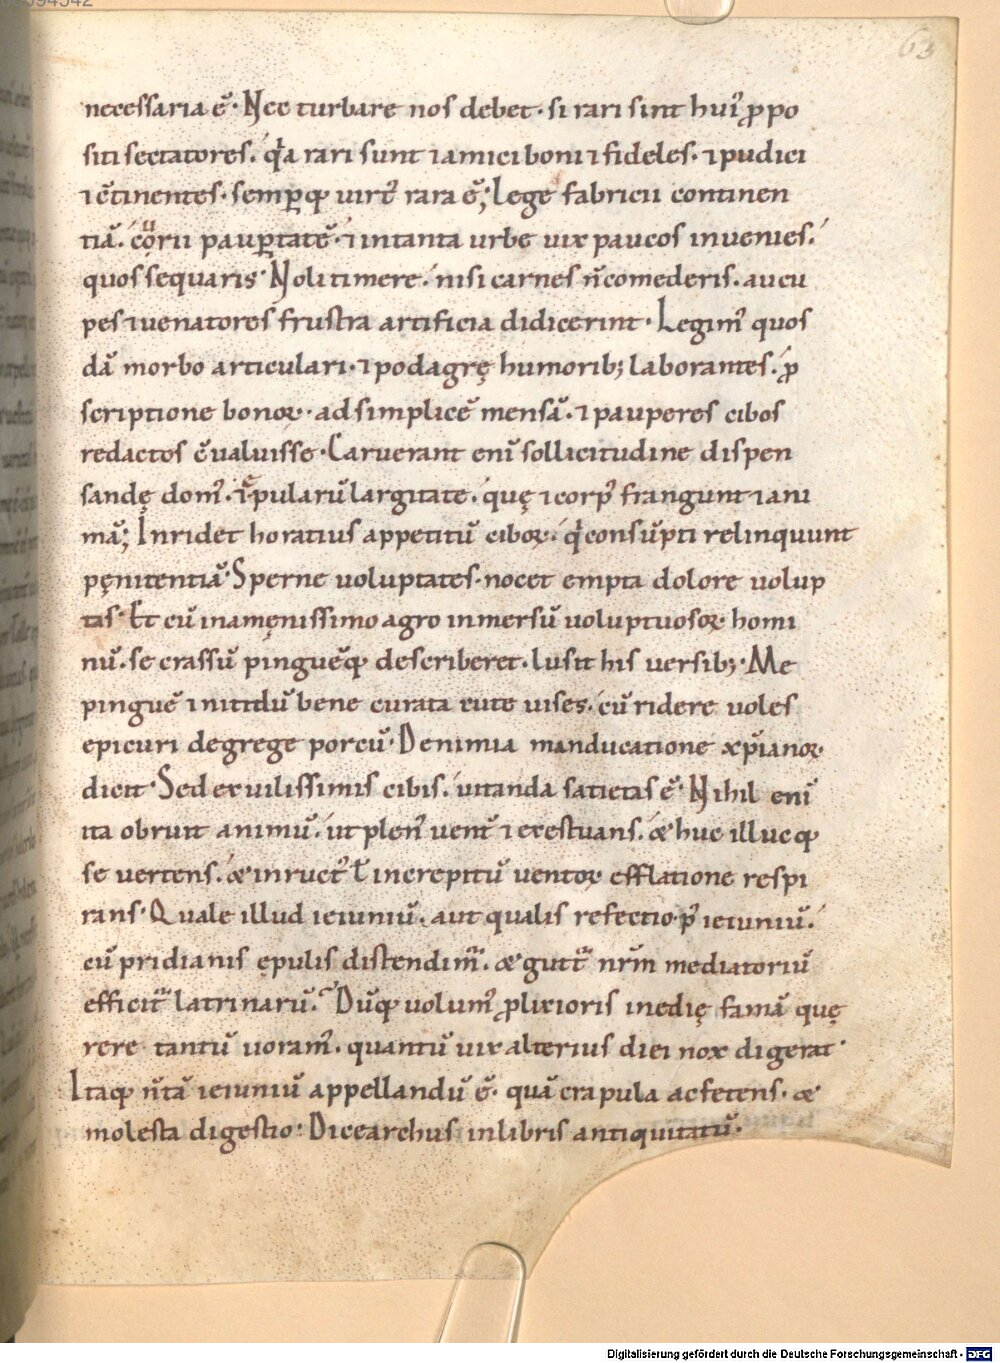 63
necessaria ē· Nec turbare nos debet· si rari sint hui᷒ ꝓpo
siti sectatores. q̇a rari sunt ⁊amici boni ⁊fideles· ⁊pudici
⁊c̄tinentes· semꝑq; uirt᷒ rara ē; Lege fabricii continen
tiā. cu᷒rii pauꝑtatē· ⁊intanta urbe uix paucos inuenies.
quos sequaris· Noli timere. nisi carnes n̄ comederis. aucu
pes ⁊uenatores frustra artificia didicerint· Legim᷒ quos
dā morbo articulari· ⁊podagrę humorib; laborantes. ꝓ
scriptione bonoꝝ· ad simplicē mensā. ⁊pauperes cibos
redactos c̄ualuisse· Caruerant enī sollicitudine dispen
sandę dom᷒. ⁊ępularū largitate. quę ⁊corp᷒ frangunt ⁊ani
mā; Inridet horatius appetitū ciboꝝ. q̇ consūpti relinquunt
pęnitentiā· Sperne uoluptates· nocet empta dolore uolup
tas· Et cū inamęnissimo agro inmersū uoluptuosoꝝ homi
nū. se crassū pinguēq; describeret. lusit his uersib;· Me
pinguē ⁊nitidū bene curata cute uises. cū ridere uoles
epicuri degrege porcū· Denimia manducatione xp̄ianoꝝ
dicit· Sed ex uilissimis cibis. uitanda satietas ē· Nihil enī
ita obruit animū. ut plen᷒ uent̄ ⁊ exestuans. & huc illucq;
se uertens. & inruct᷒ ł increpitū uentoꝝ efflatione respi
rans· Quale illud ieiuniū. aut qualis refectio p᷒ ieiuniū.
cū pridianis ępulis distendim᷒. & gutt᷒ nr̄m mediatoriū
efficit᷒ latrinarū. Dūq; uolum᷒ ꝓlixioris inedię famā quę
rere tantū uoram᷒. quantū uix alterius diei nox digerat·
Itaq; n̄tā ieiuniū appellandū ē· quā crapula ac fetens· &
molesta digestio· Dicearchus inlibris antiquitatū·
Digitalisierung gefördert durch die Deutsche Forschungsgemeinschaft - DFG